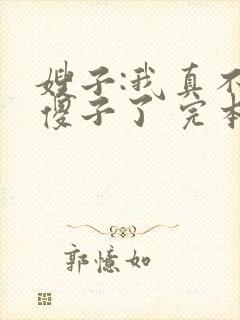 嫂子:我真不
傻子了 完本
郭憶如